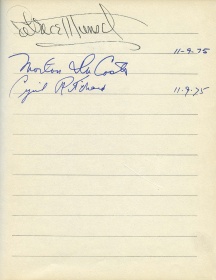 11-9-75
Morton Da Costa
Cyril Ritchard 11-9-75